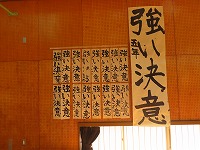 強い決意
五年
強い決意
強い決意
強い決意
強い決意
強い決意
強い決意
強い決意
強い決意
強い決意
強い決意
強い決意
強い決意